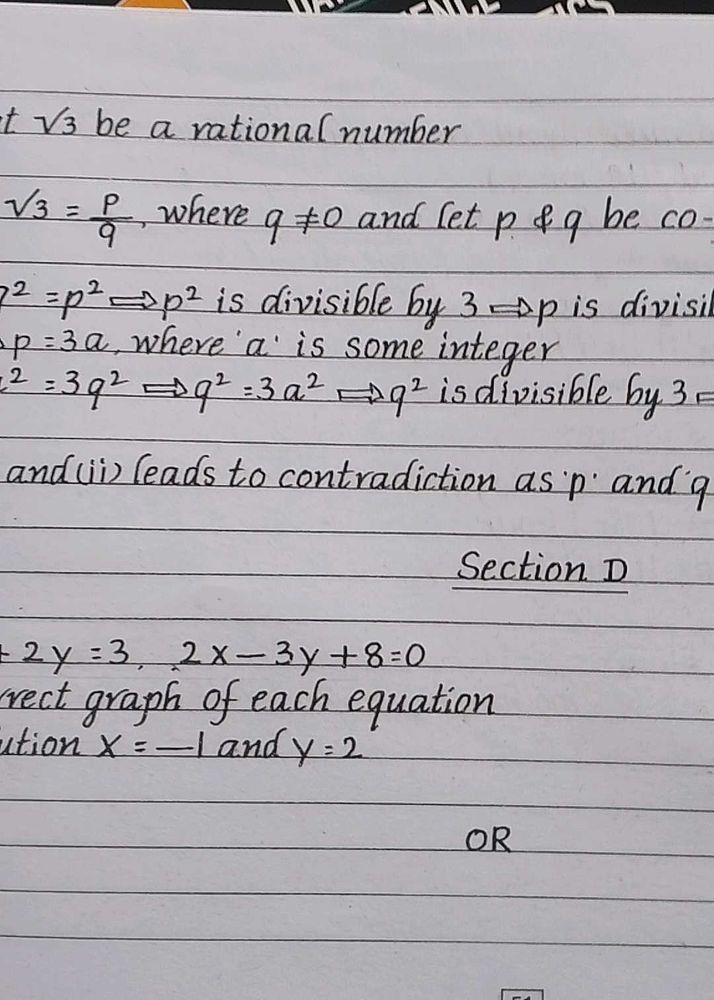 t √3 be a rational number
√3 = p/q, where q ≠ 0 and let p & q be co-
q² = p² ⟹ p² is divisible by 3 ⟹ p is divisi
p = 3a, where 'a' is some integer
² = 3q² ⟹ q² = 3a² ⟹ q² is divisible by 3
and (ii) leads to contradiction as 'p' and 'q
Section D
+ 2y = 3, 2x – 3y + 8 = 0
rrect graph of each equation
ution x = –1 and y = 2
OR